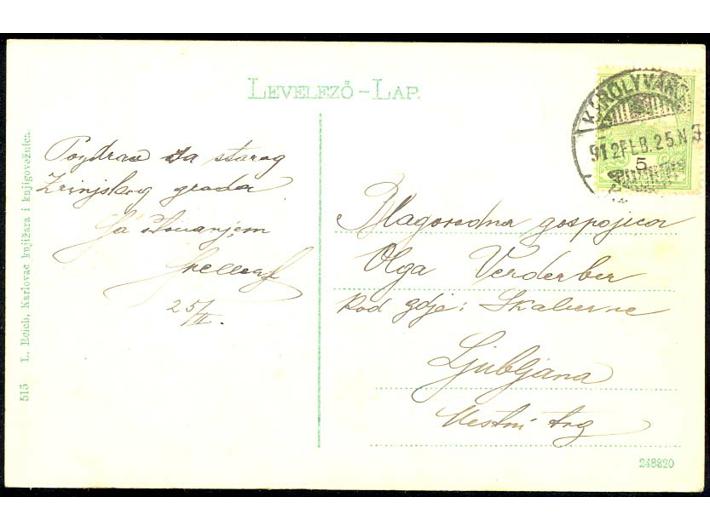 LEVELEZŐ-LAP.
KÁROLYVÁROS
912 FEB. 25. N 3
5
Pozdrav sa starog
Zrinjskog grada
Sa štovanjem
25/II.
Blagorodna gospojica
Olga Verderber
kod gdje: Skaberne
Ljubljana
Mestni trg
515 L. Reich, Karlovac knjižara i knjigovežnica.
248820